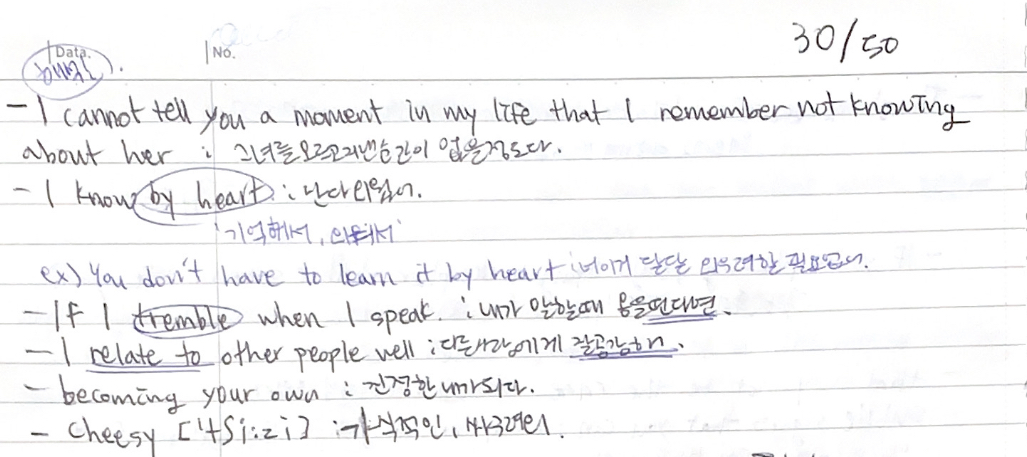 Data.
No.
30/50
- I cannot tell you a moment in my life that I remember not knowing
about her : 그녀를 모르고지낸순간이 없을정도다.
- I know by heart : 난다외웠어.
'기억해서, 외워서'
ex) You don't have to learn it by heart : 너이거 달달 외우려할 필요없어.
- If I tremble when I speak. : 내가 말할때 몸을떤다면.
- I relate to other people well : 다른사람에게 잘공감해.
- becoming your own : 진정한 내가되다.
- Cheesy [tʃi:zi] : 가식적인, 싸구려의.